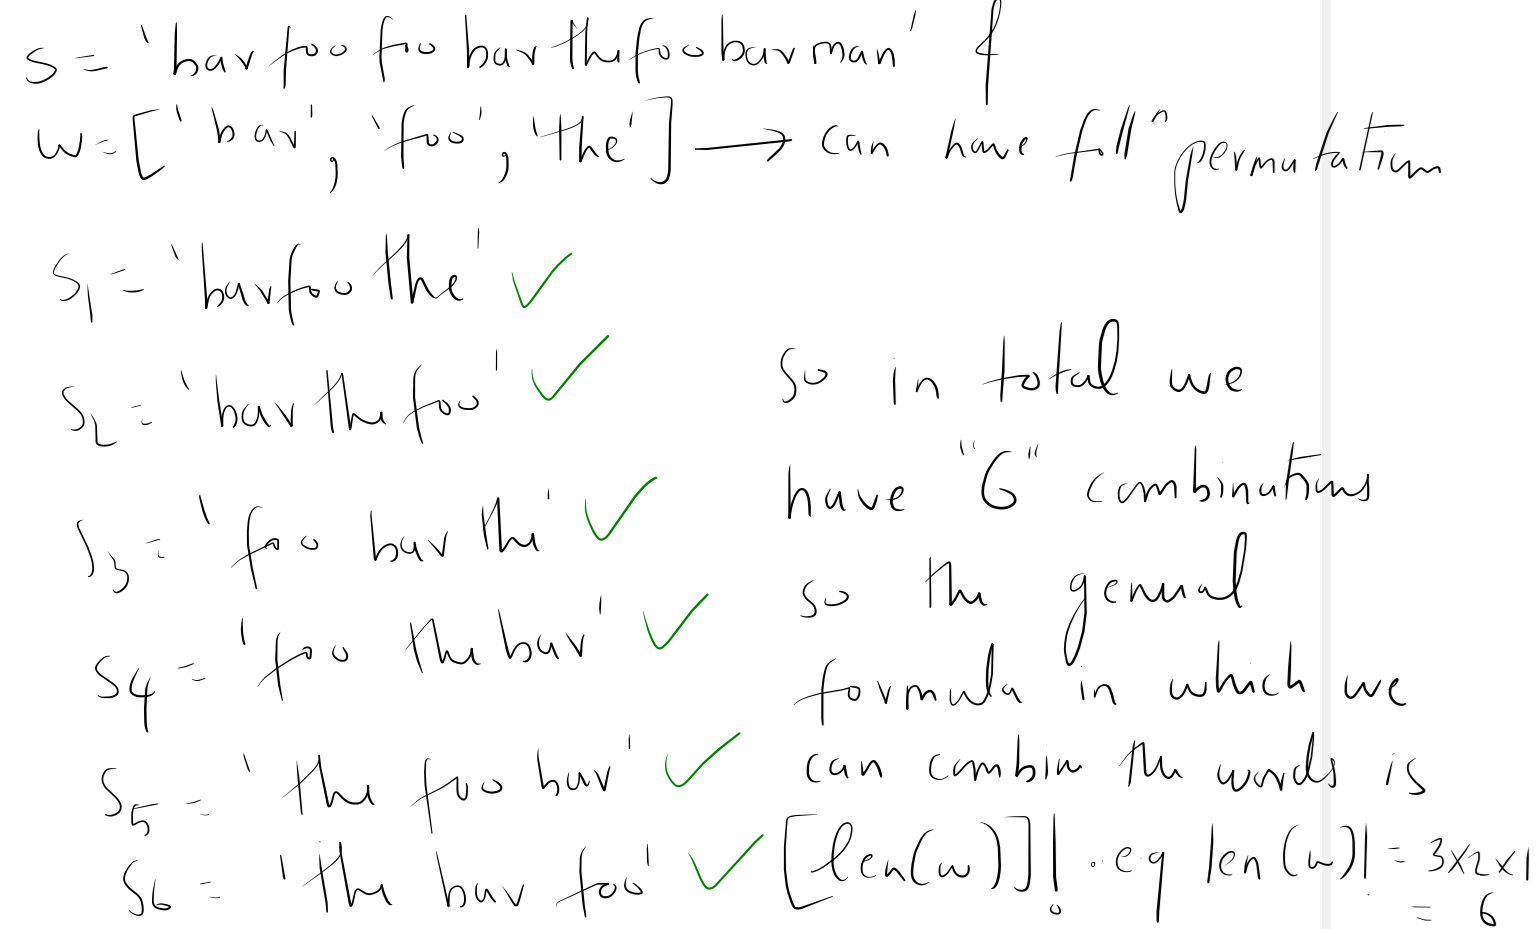 s = 'barfoofoobarthefoobarman' &
w = ['bar', 'foo', 'the'] → can have follⁿ permutation
S1 = 'barfoothe' ✓
S2 = 'barthefoo' ✓
S3 = 'foo bar the' ✓
S4 = 'foo the bar' ✓
S5 = 'the foo bar' ✓
S6 = 'the bar foo' ✓
so in total we
have "6" combinations
so the general
formula in which we
can combine the words is
[len(w)]! . eg len(w)! = 3x2x1
= 6